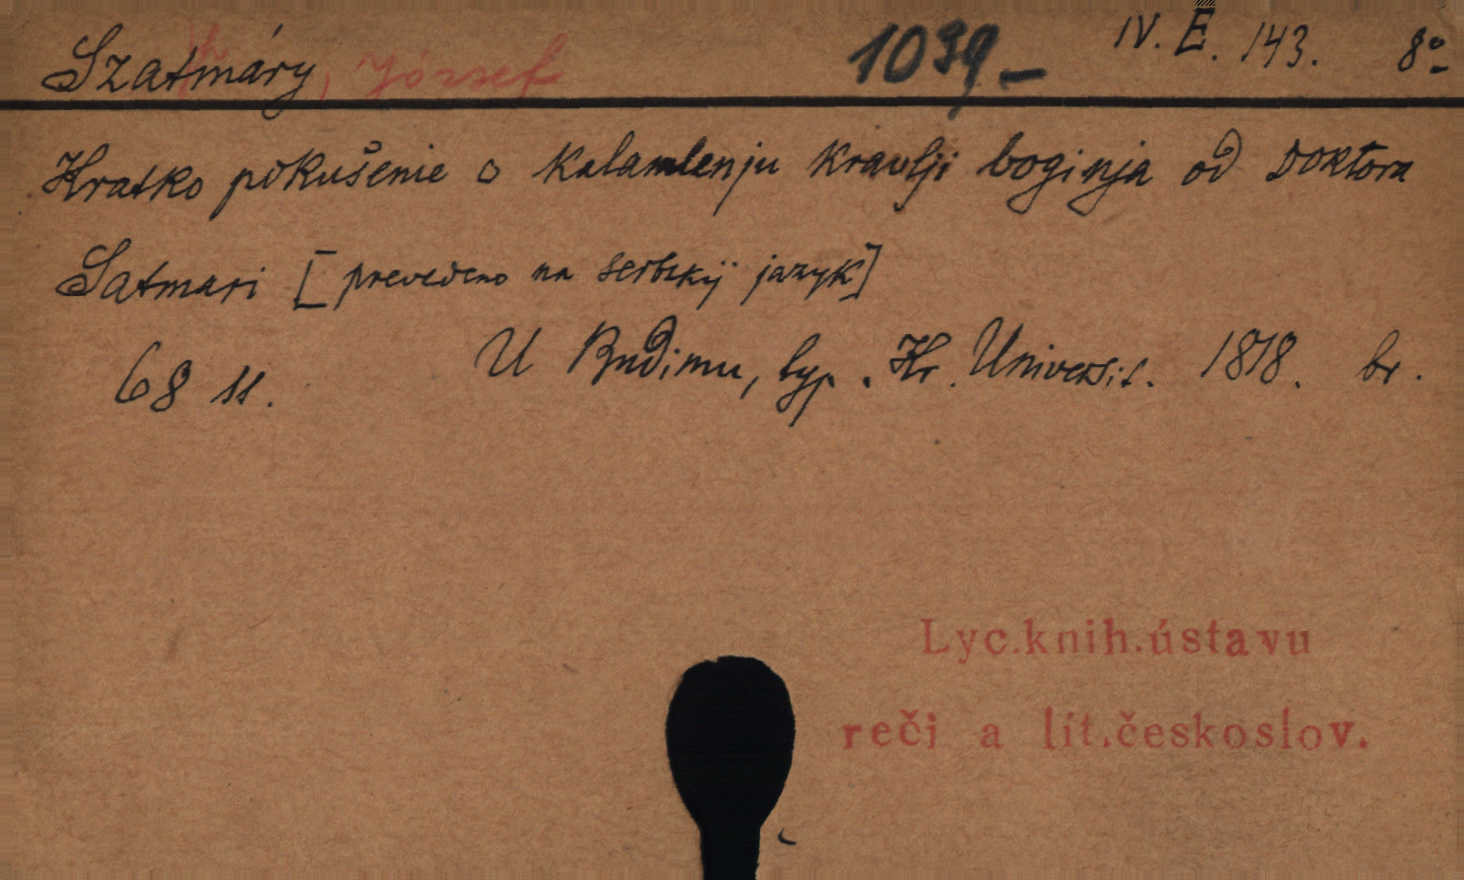 Szathmáry, József 1039- IV. E. 143. 8°
Kratko pokušenie o kalamlenju kravlji boginja od Doktora
Satmari [prevedeno na serbskij jazyk]
68 ss. U Budimu, typ. Kr. Universit. 1818. br.
Lyc.knih.ústavu
reči a lit.českoslov.